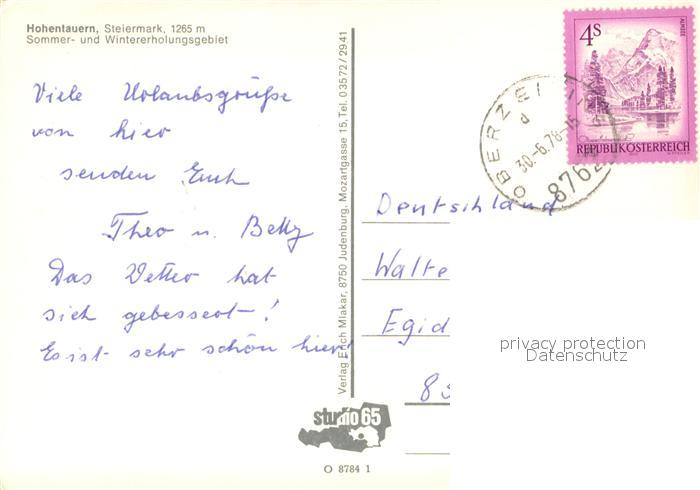 Hohentauern, Steiermark, 1265 m
Sommer- und Wintererholungsgebiet
Viele Urlaubsgrüße
von hier
senden Euch
Theo u. Betty
Das Wetter hat
sich gebessert!
Es ist sehr schön hier!
Verlag Erich Mlakar, 8750 Judenburg, Mozartgasse 15, Tel. 03572/2941
studio 65
O 8784 1
4S
ALMSEE
REPUBLIK ÖSTERREICH
OBERZEI
d
30.-6.78-15
8762
Deutschland
Walte
Egid
85
privacy protection
Datenschutz